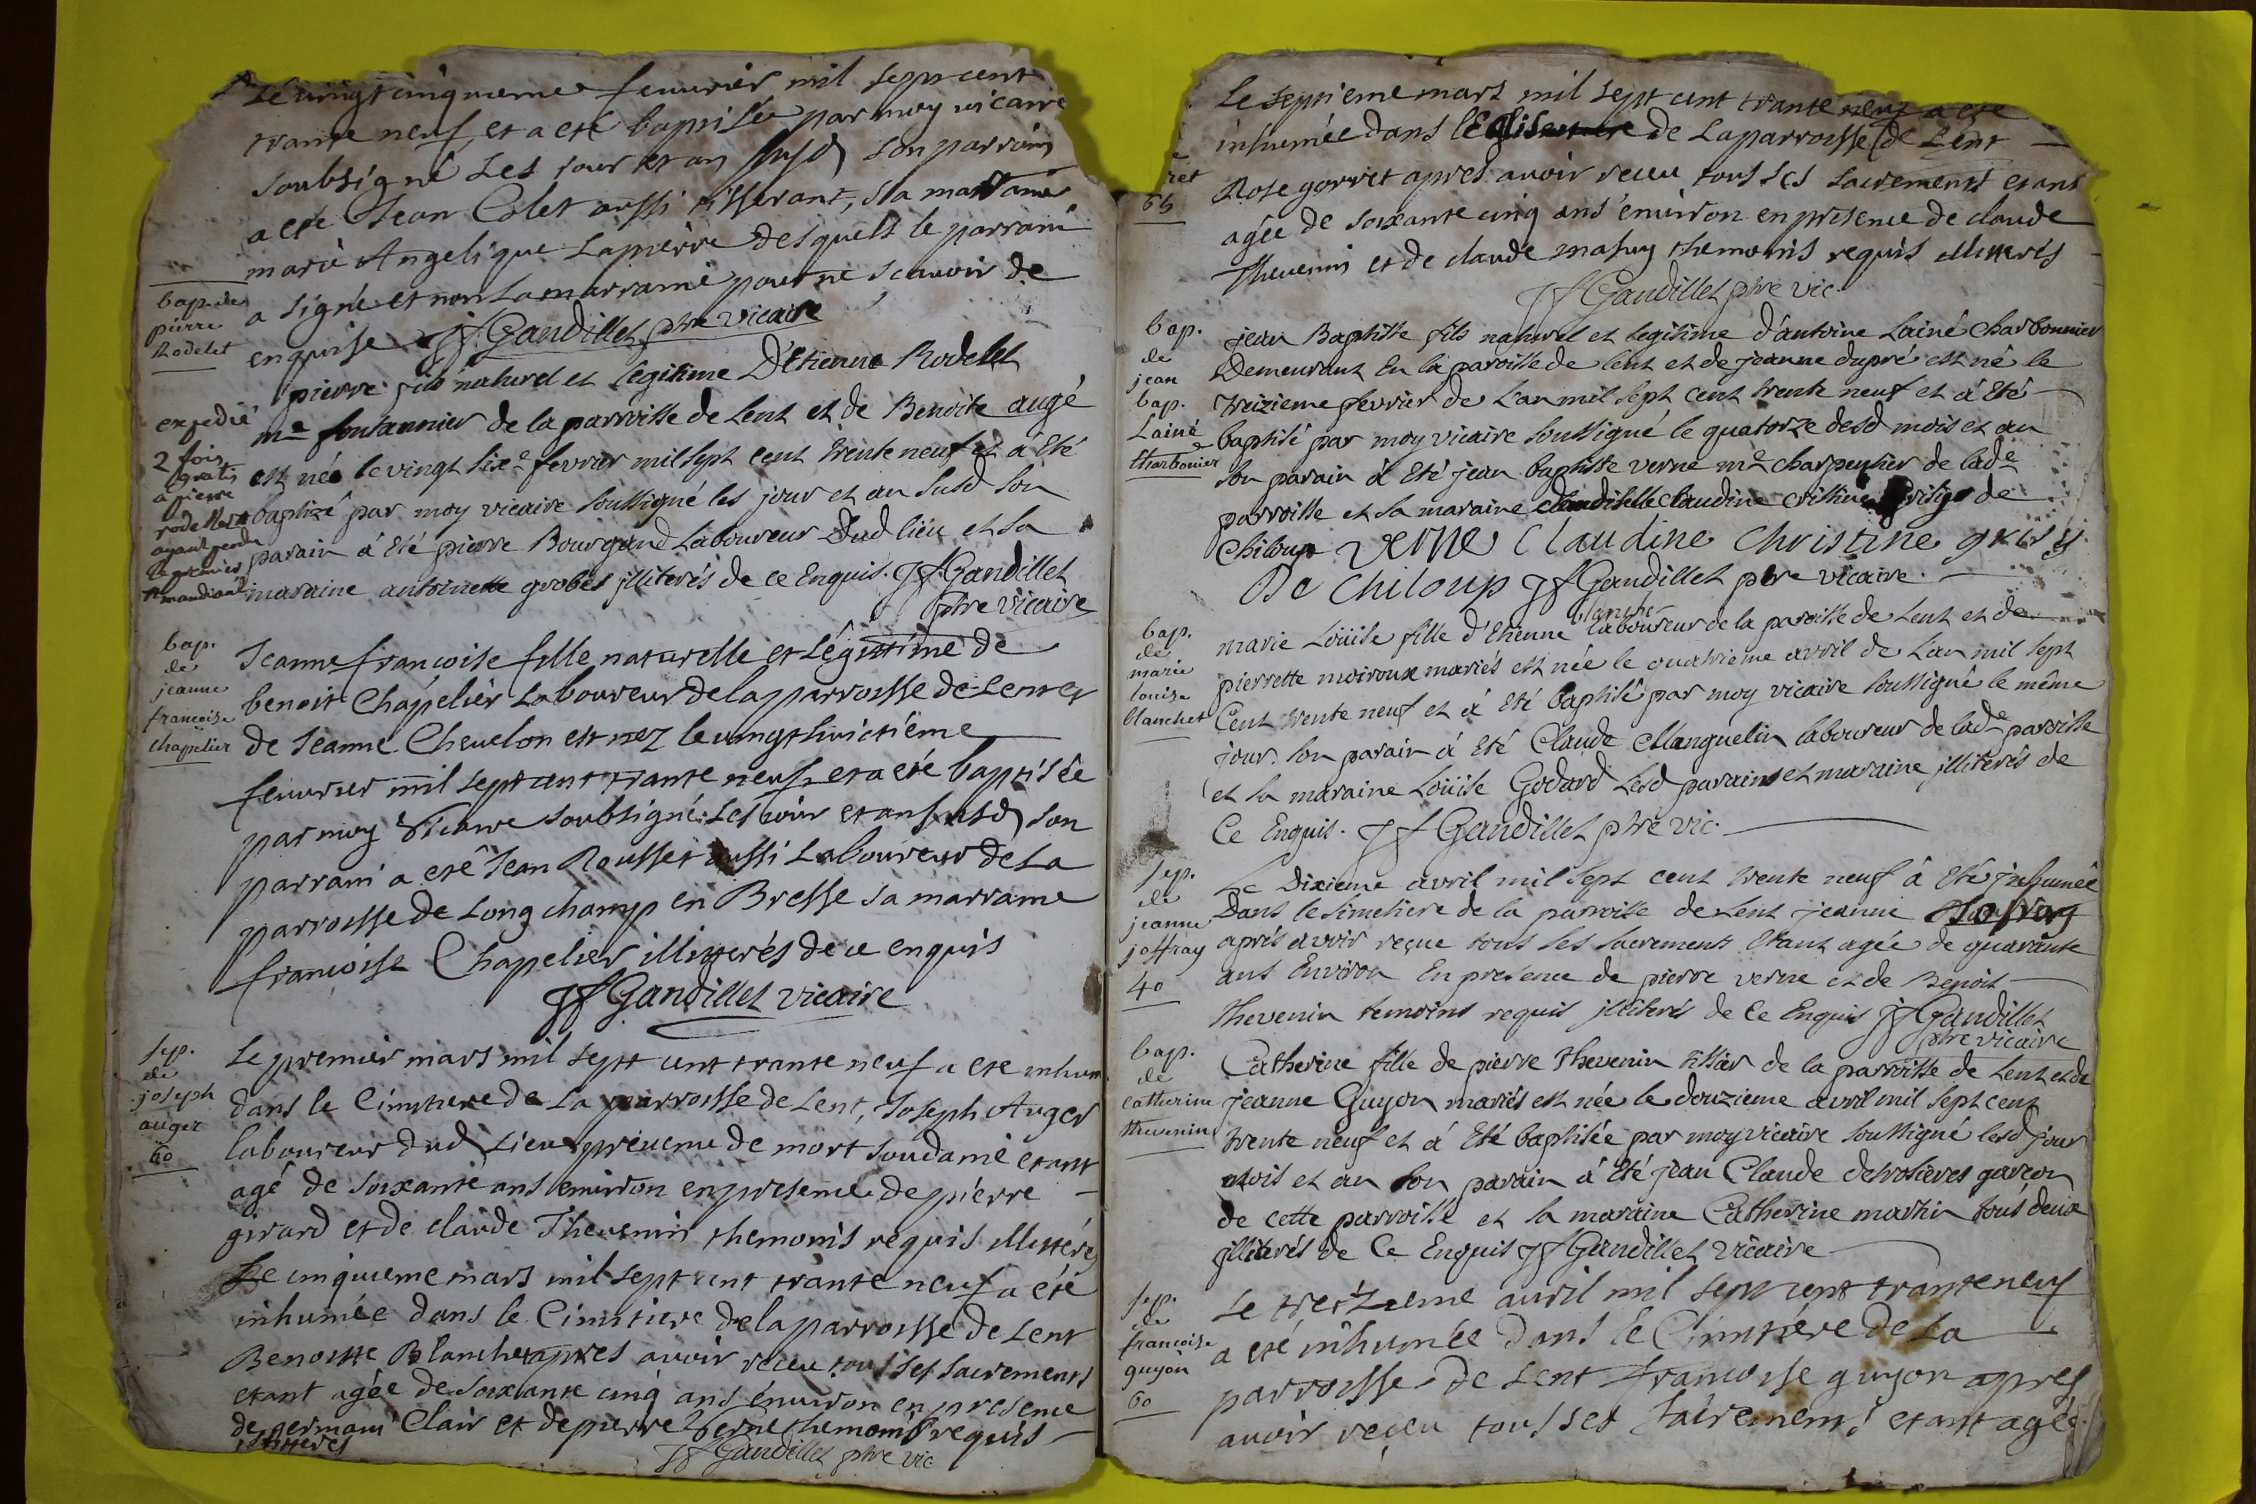 Le vingt cinquieme fevurier mil sept cent
trante neuf et a eté baptisée par moy vicaire
soubsigné les jour et an susd son parrain
a eté Jean Colet aussi tisserant, sa marraine
marie Angelique Lapierre desquels le parrain
a signé et non la marraine pour ne scavoir de
enquise JF Gandillet ptre vicaire
bap. de
pierre
Rodelet
pierre fils naturel et legitime D'Etienne Rodelet
me fontannier de la parroisse de Lent et de Benoite augé
est née le vingt sixe fevrier mil sept cent trente neuf et à été
baptizé par moy vicaire soussigné les jour et an susd son
parain à été pierre Bourgand Laboureur Dud lieu et sa
maraine antoinette grobel jlliterés de ce Enquis. JF Gandillet
ptre vicaire
expedié
2 fois
gratis
a pierre
rodelet
ayant perdu
le premier
mandiant
bap.
de
jeanne
francoise
chapelier
Jeanne francoise fille naturelle et Légitime de
benoit Chapelier Laboureur de la parroisse de Lent et
de Jeanne Chevelon est nez le vingt huictiéme
fevurier mil sept cent trante neuf et a eté baptisée
par moy Vicaire soubsigné les jour et an susd son
parrain a eté Jean Rousset aussi Laboureur de La
parroisse de Long champ en Bresse sa marraine
francoise Chapelier illitterés de ce enquis
JF Gandillet vicaire
sep.
de
joseph
auger
60
Le premier mars mil sept cent trante neuf a eté inhum
dans le Cimetiere de La parroisse de Lent, Joseph Auger
laboureur dud Lieu prevenu de mort soudaine etant
agé de soixante ans environ en presence de pierre
girard et de claude Thevenin themoins requis illitterés
Le cinquieme mars mil sept cent trante neuf a été
inhumée dans le Cimetiere de la parroisse de Lent
Benoitte Blanchet apres avoir receu tous ses sacrements
etant agée de soixante cinq ans environ en presence
de germain Clair et de pierre Verne themoins requis
illitteres
JF Gandillet ptre vic
65
Le septieme mars mil sept cent trante neuf a eté
inhumée dans l'Eglise de La parroisse de Lent
Rose gorret apres avoir receu tous ses sacrements etant
agée de soixante cinq ans environ en presence de claude
Thevenin et de claude mahuy themoins requis illitterés
JF Gandillet ptre vic.
bap.
de
jean
bap.
Lainé
Charbonier
jean Baptiste fils naturel et legitime d'antoine Lainé Charbonnier
Demeurant En la paroisse de lent et de jeanne dupré est né le
treizieme fevrier de L'an mil sept cent trente neuf et à Eté
baptisé par moy vicaire soussigné le quatorze desd mois et an
son parain à Eté jean baptiste verne me charpentier de lade
parroisse et sa maraine Claudine cristine de
Chiloup verne Claudine Christine
De Chiloup JF Gandillet ptre vicaire.
bap.
de
marie
louise
blanchet
blanchet
marie Loüise fille d'Etienne laboureur de la paroisse de Lent et de
pierrette moiroux mariés est née le quatrieme avril de L'an mil sept
Cent trente neuf et à été baptisé par moy vicaire soussigné le même
jour. son parain à été Claude Manguelin laboureur de lade paroisse
et sa maraine Loüise Godard Lesd parains et maraine jlliterés de
Ce Enquis. JF Gandillet ptre vic.
sep.
de
jeanne
joffray
40
Le Dixieme avril mil sept cent trente neuf à Eté jnhumée
Dans le simetiere de la parroisse de Lent jeanne Joffray
aprés avoir reçue tous ses sacrements Etant agée de quarante
ans Environ En presence de pierre verne et de Benoit
thevenin temoins requis jlliterés de Ce Enquis JF Gandillet
ptre vicaire
bap.
de
catherine
thevenin
Catherine fille de pierre thevenin tissier de la parroisse de Lent et de
jeanne Guyon mariés est née le douzieme avril mil sept cent
trente neuf et à Eté baptisée par moy vicaire soussigné lesd jour
mois et an son parain à été jean Claude desrosieres garçon
de cette parroisse et sa maraine Catherine martin tous deux
jlliterés de Ce Enquis JF Gandillet vicaire
sep.
de
francoise
guyon
60
Le treizieme avril mil sept cent trante neuf
a eté inhumée dans le Cimetiére de La
parroisse de Lent francoise guyon apres
avoir reçeu tous ses sacrements etant agée